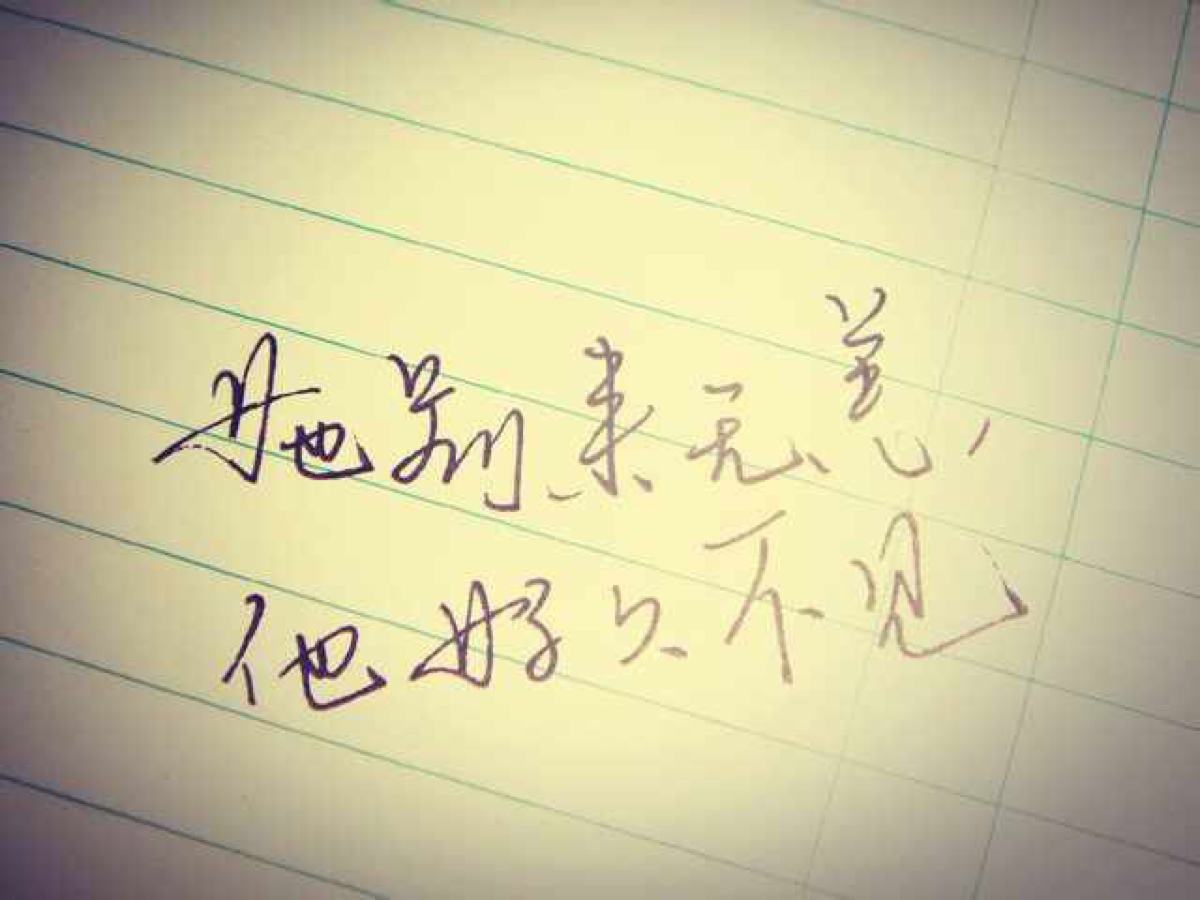 她别来无恙,
他好久不见